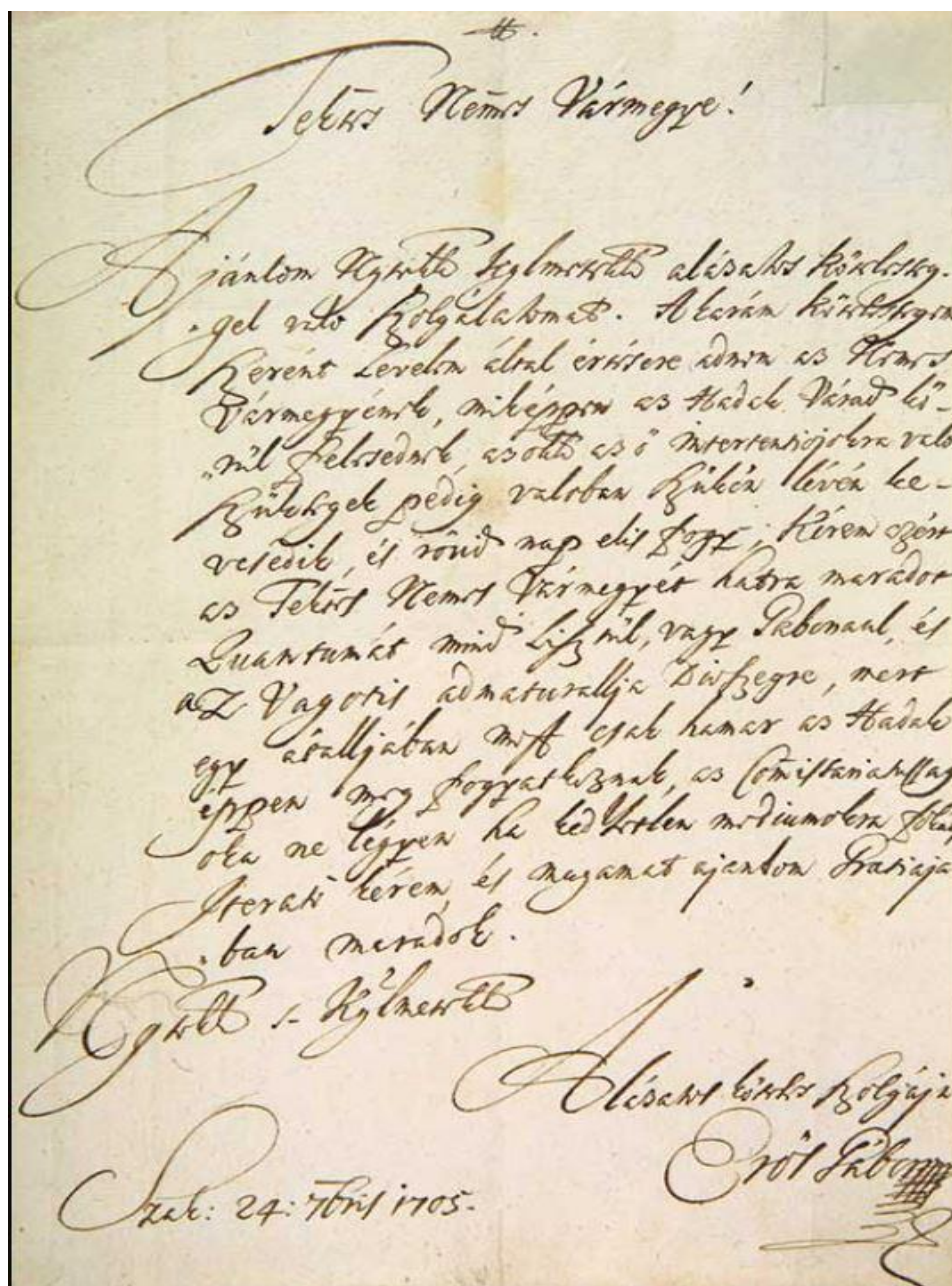 Tektes Nemes Vármegye!
Ajánlom Kgltek alázatos köteless-
gel való szolgálatomat. Akarám kötelessegem
szerént Levelem által értésere adnom az Nemes
Vármegyének, miképpen az Hadak Várad kö-
rül fekesednek, azokk az ö intertentiojokra való
szükségek pedig valoban szükön lévén ke-
vesedik, és rövid nap elis fogy; Kérem azért
az Tekts Nemes Vármegyét hátra maradot
Quantumát mind Lisztül, vagy Gabonaul, és
az Vagotis admaturallja Diószegre, mert
egy átalljában most csak hamar az Hadak
éppen meg fogyatkoznak, az Comissariatussag
oka ne légyen ha kedvetlen mediumokra
Iterato kérem, és magamat ajanlom Gratiajá
ban maradok.
Alázatos köteles szolgája
Erös Gábor
Szak: 24: 7bris 1705.